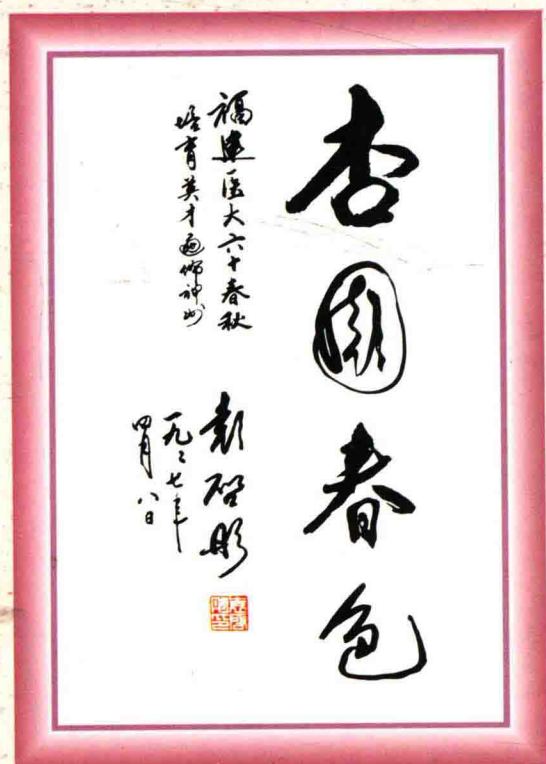 杏园春色
福建医大六十春秋
培育英才遍佈神州
袁启彤
一九九七年
四月八日